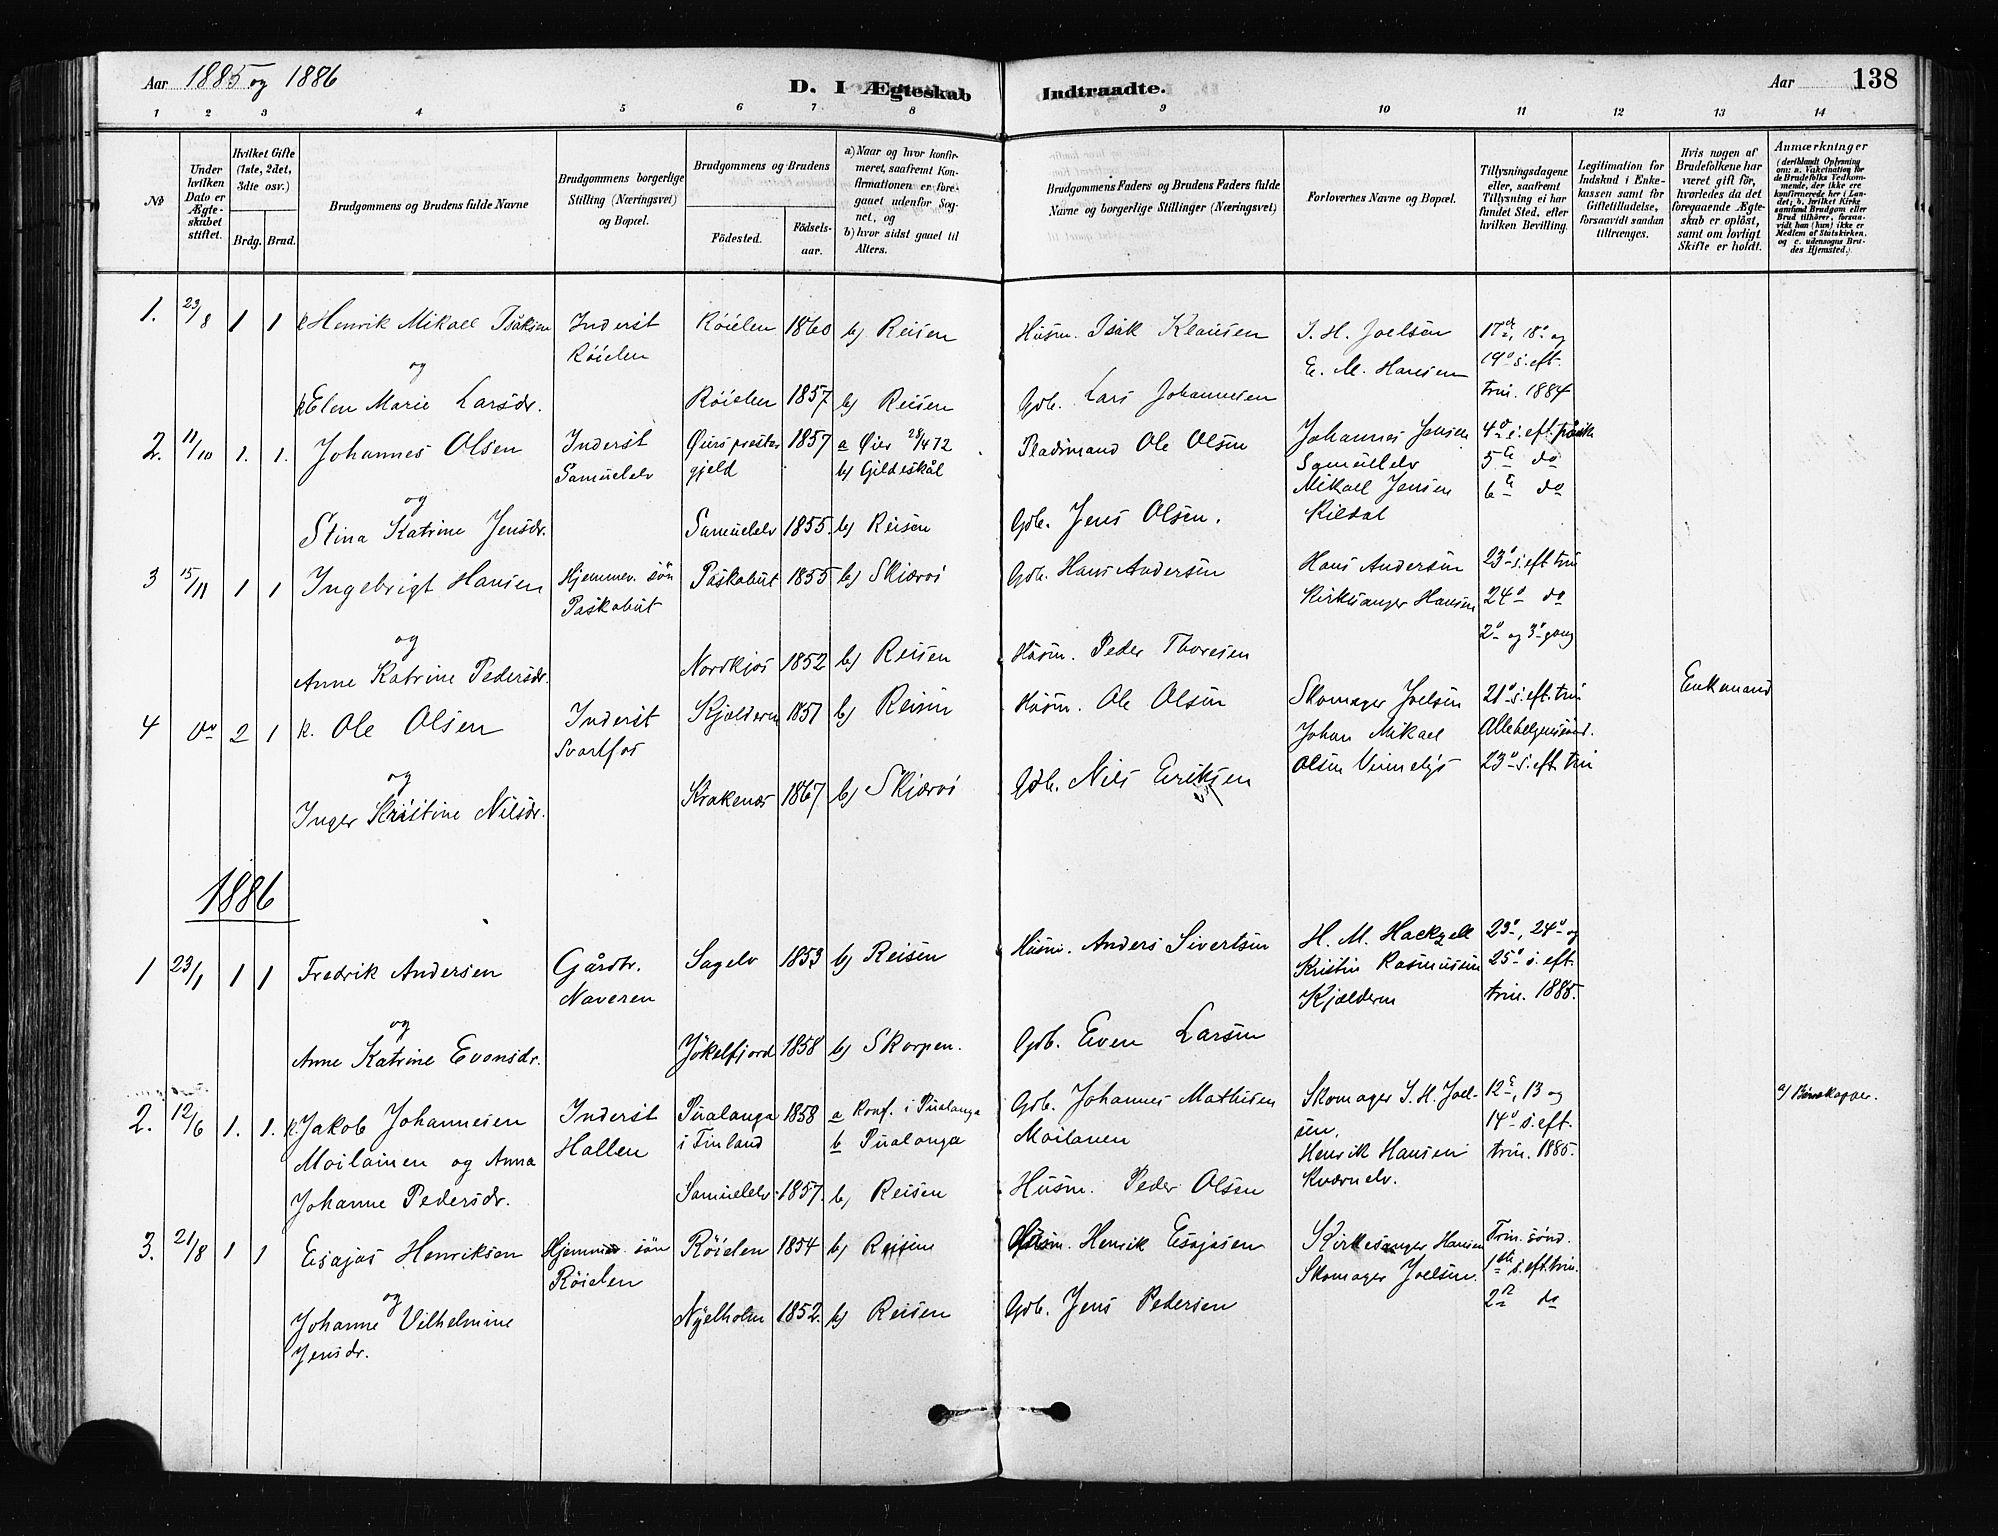 Aar 1885 og 1886
D. I Ægteskab Indtraadte.
Aar 138
1 2 3 4 5 6 7 8 9 10 11 12 13 14
No
Under hvilken Dato er Ægteskabet stiftet.
Hvilket Gifte (1ste, 2det, 3die osv.)
Brdg. Brud.
Brudgommens og Brudens fulde Navne
Brudgommens borgerlige Stilling (Næringsvei) og Bopæl.
Brudgommens og Brudens
Fødested.
Fødselsaar.
a) Naar og hvor konfirmeret, saafremt Konfirmationen er foregaaet udenfor Sognet, og
b) hvor sidst gaaet til Alters.
Brudgommens Faders og Brudens Faders fulde Navne og borgerlige Stillinger (Næringsvei)
Forlovernes Navne og Bopæl.
Tillysningsdagene eller, saafremt Tillysning ei har fundet Sted, efter hvilken Bevilling.
Legitimation for Indskud i Enkekassen samt for Giftetilladelse, forsaavidt saadan tiltrænges.
Hvis nogen af Brudefolkene har været gift før, hvorledes da det foregaaende Ægteskab er opløst, samt om lovligt Skifte er holdt.
Anmærkninger (deriblandt Oplysning om: a. Vakcination for de Brudefolks Vedkommende, der ikke ere konfirmerede her i Landet; b. hvilket Kirkesamfund Brudgom eller Brud tilhører, forsaavidt han (hun) ikke er Medlem af Statskirken, og c. udensogns Brudes Hjemsted.)
1. 23/8 1 1 k Henrik Mikael Isaksen Inderst Röielen Röielen 1860 b) Reisen Husm. Isak Klausen I. H. Joelsen E. M. Hansen 17de, 18o og 19o s. eft. trin. 1884
og
k Elen Marie Larsdr. Röielen 1857 b) Reisen Gdb. Lars Johannesen
2. 11/10 1. 1. Johannes Olsen Inderst Samuelelv Øiers prestegjeld 1857 a Øier 28/4 72 b) Gildeskål Pladsmand Ole Olsen Johannes Jensen Samuelelv Mikael Jensen Kildal 4o s. eft. påske 5te do 6te do
og
Stina Katrine Jensdr. Samuelelv 1855. b) Reisen Gdb. Jens Olsen.
3 15/11 1 1 Ingebrigt Hansen Hjemmev. sön Paskabut Paskabut 1855 b) Skjærvö Gdb. Hans Andersen Hans Andersen Kirkesanger Hansen 23o s. eft trin 24o do 2o og 3o gang
og
Anne Katrine Pedersdr. Nordkjos 1852 b) Reisen Husm. Peder Thoresen
4 do 2 1 k. Ole Olsen Inderst Svartfos Kjelderen 1851 b) Reisen Husm. Ole Olsen Skomager Joelsen Johan Mikael Olsen 21o s. eft. trin Allehelgensönd. 23o s. eft. trin Enkemand
og
Inger Kristine Nilsdr. Krakenes 1867 b) Skjærvö Gdb. Nils Eriksen
1886
1 23/1 1 1 Fredrik Andersen Gårdbr. Naveren Sagelv 1853 b) Reisen Husm. Anders Sivertsen H. M. Hackzell Kristin Rasmussen Kjelderen 23o, 24o og 25o s. eft. trin. 1885.
og
Anne Katrine Evensdr. Jökelfjord 1858 b) Skorpen. Gdb. Even Larsen
2. 12/6 1. 1. k. Jakob Johannesen Moilainen og Anna Inderst Hallen Pualanga i Finland 1858 a Konf. i Pualanga b Pualanga Gdb. Johannes Mathisen Moilanen Skomager I. H. Joelsen, Henrik Hansen Kværnelv. 12te, 13 og 14o s. eft. trin. 1885.
Johanne Pedersdr. Samuelelv 1857. b) Reisen Husm. Peder Olsen
3. 21/8 1 1 Esajas Henriksen Hjemmev. sön Röielen Röielen 1854 b) Reisen Husm. Henrik Esajasen Kirkesanger Hansen Skomager Joelsen. Trin. sönd. 1ste s. eft. trin. 2n do
og
Johanne Vilhelmine Jensdr. Nyelholm 1852. b) Reisen Gdb. Jens Pedersen